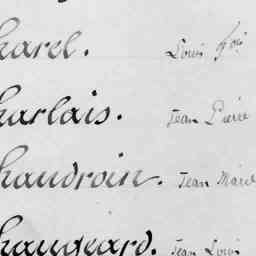 harel. Louis fçois
harlais. Jean Pierre
haudroin. Jean Marie
haugeard. Jean Louis